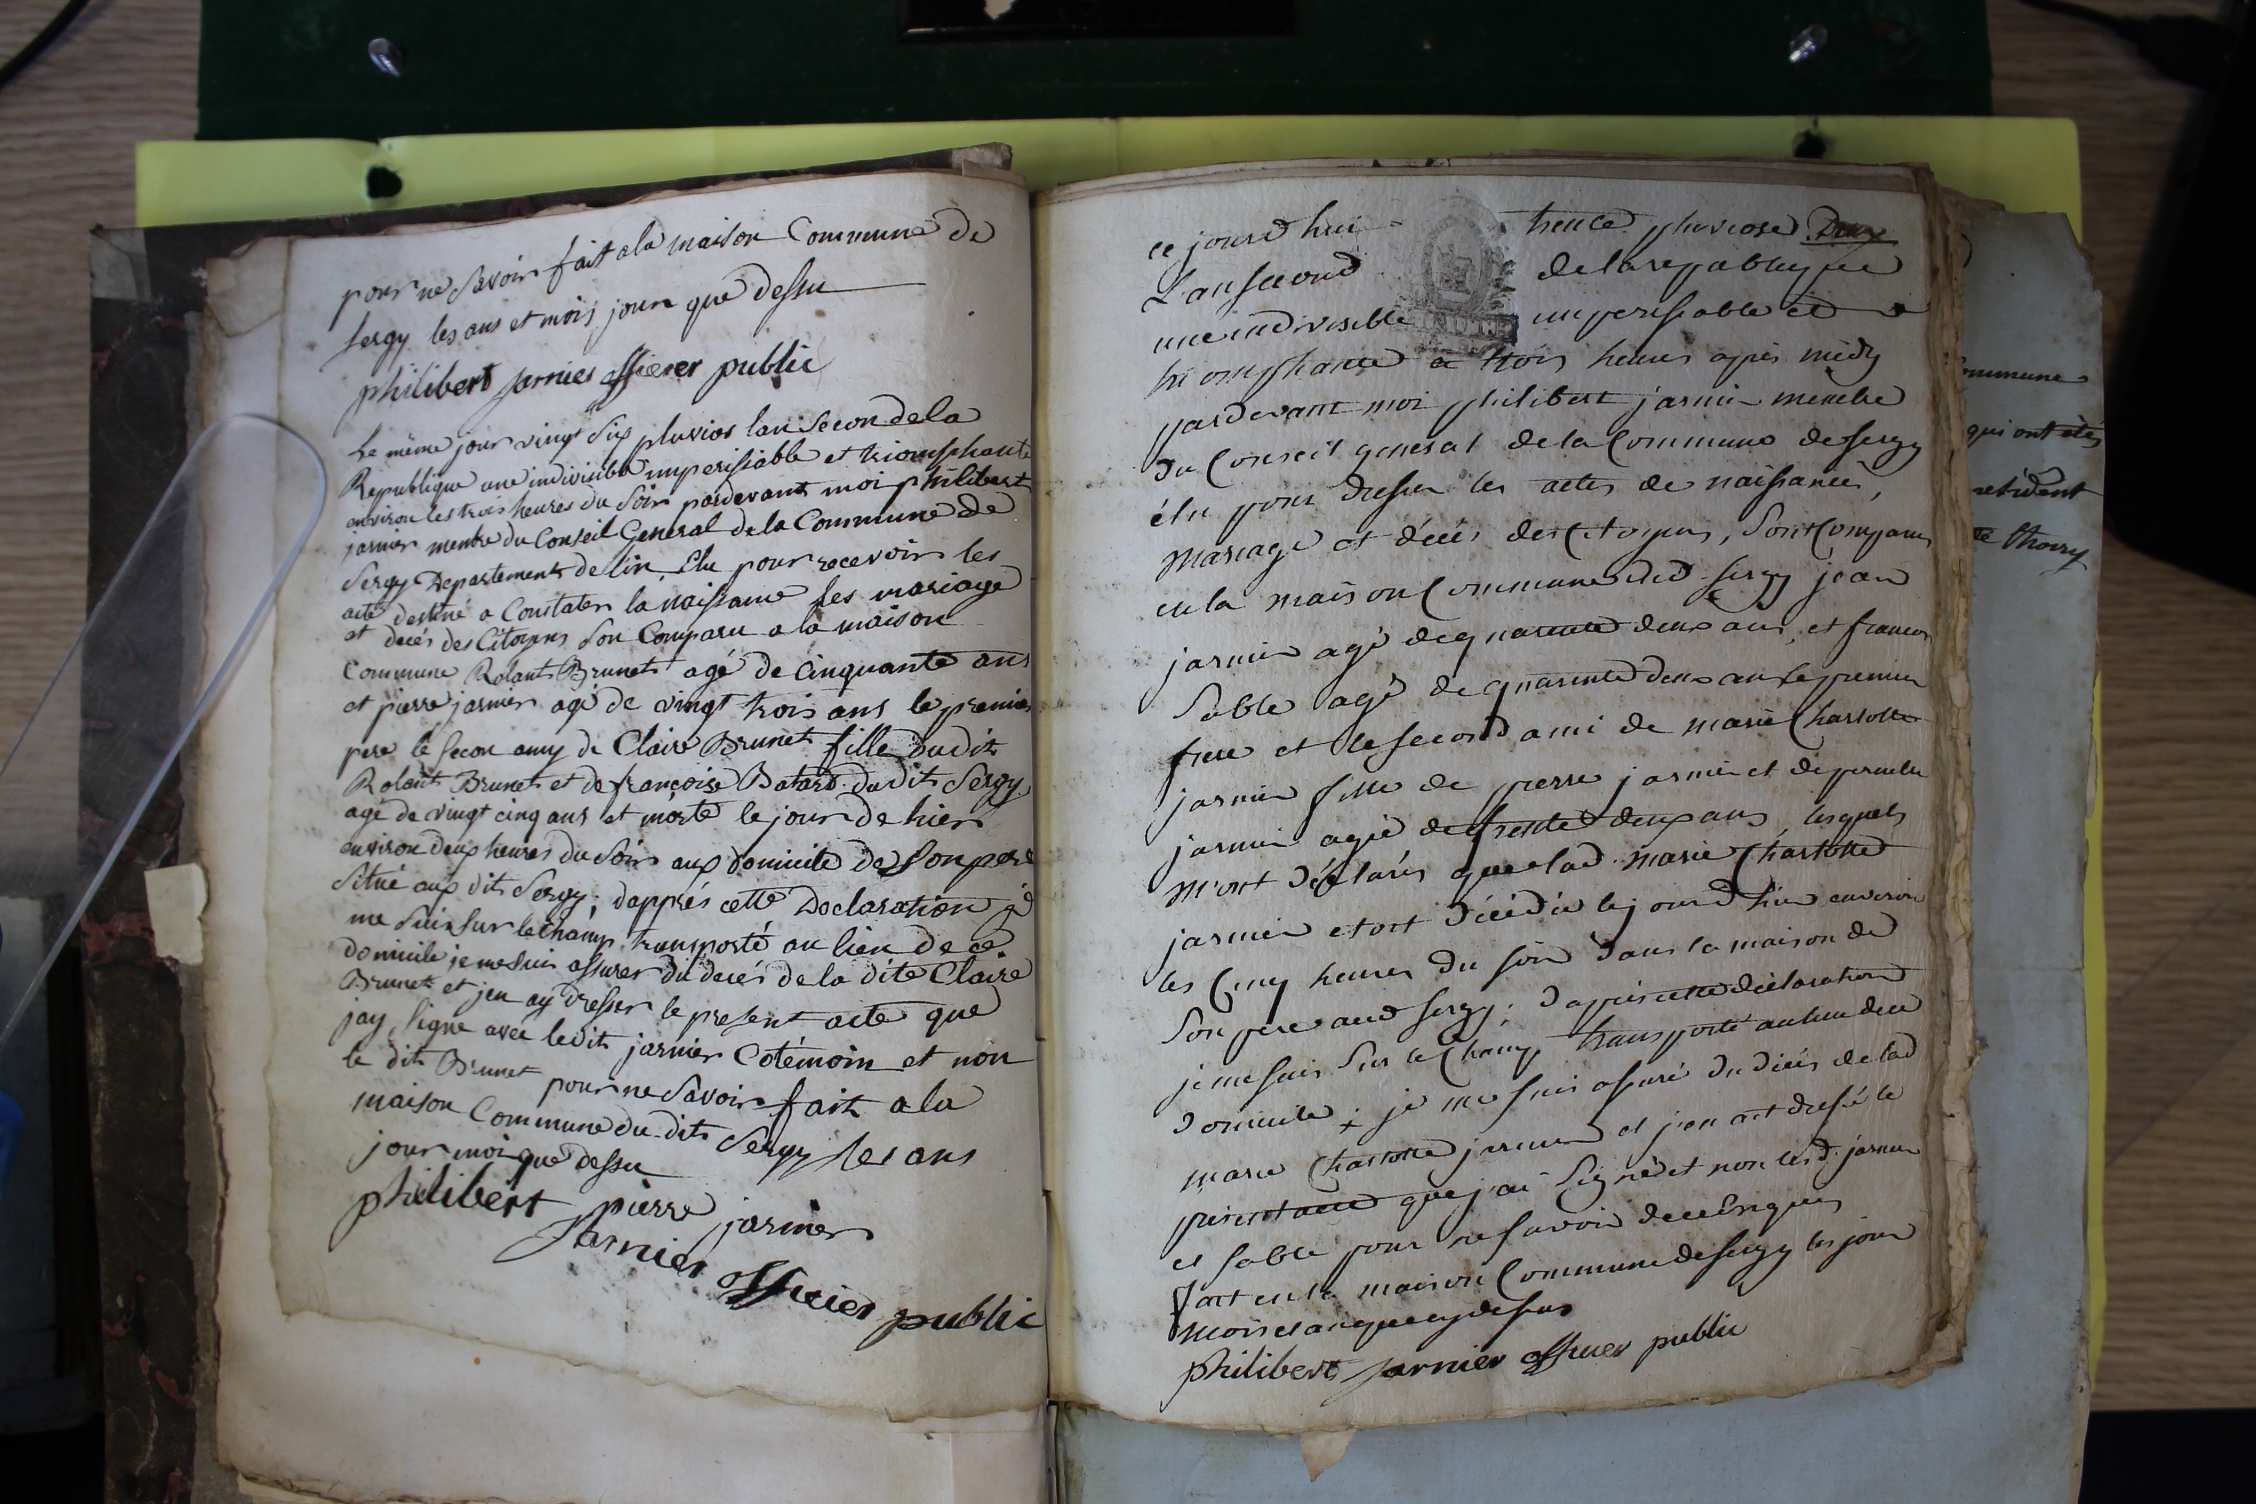 pour ne Savoir fait a la maison Commune de
Sergy les ans et mois jour que dessu
philibert jarnier officier public
Le même jour vingt Six pluvios lan Secon de la
Republique une indivisible imperissable et triomphante
environ les trois heures du Soir pardevant moi philibert
jarnier menbre du Conseil General de la Commune de
Sergy Departement de lin, Elu pour recevoir les
acte destiné a Constater la naissance les mariage
et decés des Citoyens Son Comparu a la maison
Commune Rolant Brunet agé de Cinquante ans
et pierre jarnier agé de vingt trois ans le premier
pere le Secon amy de Claire Brunet fille du dit
Rolant Brunet et de françoise Batard du dit Sergy
agé de vingt cinq ans et morte le jour de hier
environ deux heures du Soir aux domicile de Son pere
Situé aux dit Sergy; dapprés cette Declaration je
me Suis Sur le champ transporté au lieu de ce
domicile je me Suis assurer du decés de la dite Claire
Brunet et jen ay dresser le present acte que
jay Signe avec le dit jarnier Cotémoin et non
le dit Brunet pour ne Savoir fait a la
maison Commune du dit Sergy les ans
jour moi que dessu
philibert pierre jarnier
jarnier officier public
ce jourd'hui trente pluviose
L'an second de la republique
une indivisible imperissable et
triomphante a trois heures après midy
pardevant moi philibert jarnier membre
du Conseil general de la Commune de Sergy
élu pour dresser les actes de naissances,
mariage et décés des Citoyens, Sont Comparus
en la maison Commune dud. Sergy jean
jarnier agé de quarente deux ans, et francois
Sable agé de quarente deux ans le premier
frere et le second ami de marie Charlotte
jarnier fille de pierre jarnier et de pernette
jarnier agée de trente deux ans, lesquels
m'ont déclarés que lad. marie Charlotte
jarnier etoit décédée le jourd'hier environ
les Cinq heures du soir dans la maison de
Son pere aud Sergy; d'après cette déclaration
je me suis Sur le Champ transporté au lieu de ce
domicile; je me suis assuré du décés de lad
marie Charlotte jarnier et j'en ait dressé le
présent acte que j'ai Signé et non lesd. jarnier
et Sable pour ne savoir de ce Enquis
fait en la maison Commune de Sergy les jour
mois et an que cy dessus
philibert jarnier officier public
ommune
qui ont etés
résident
te thoiry